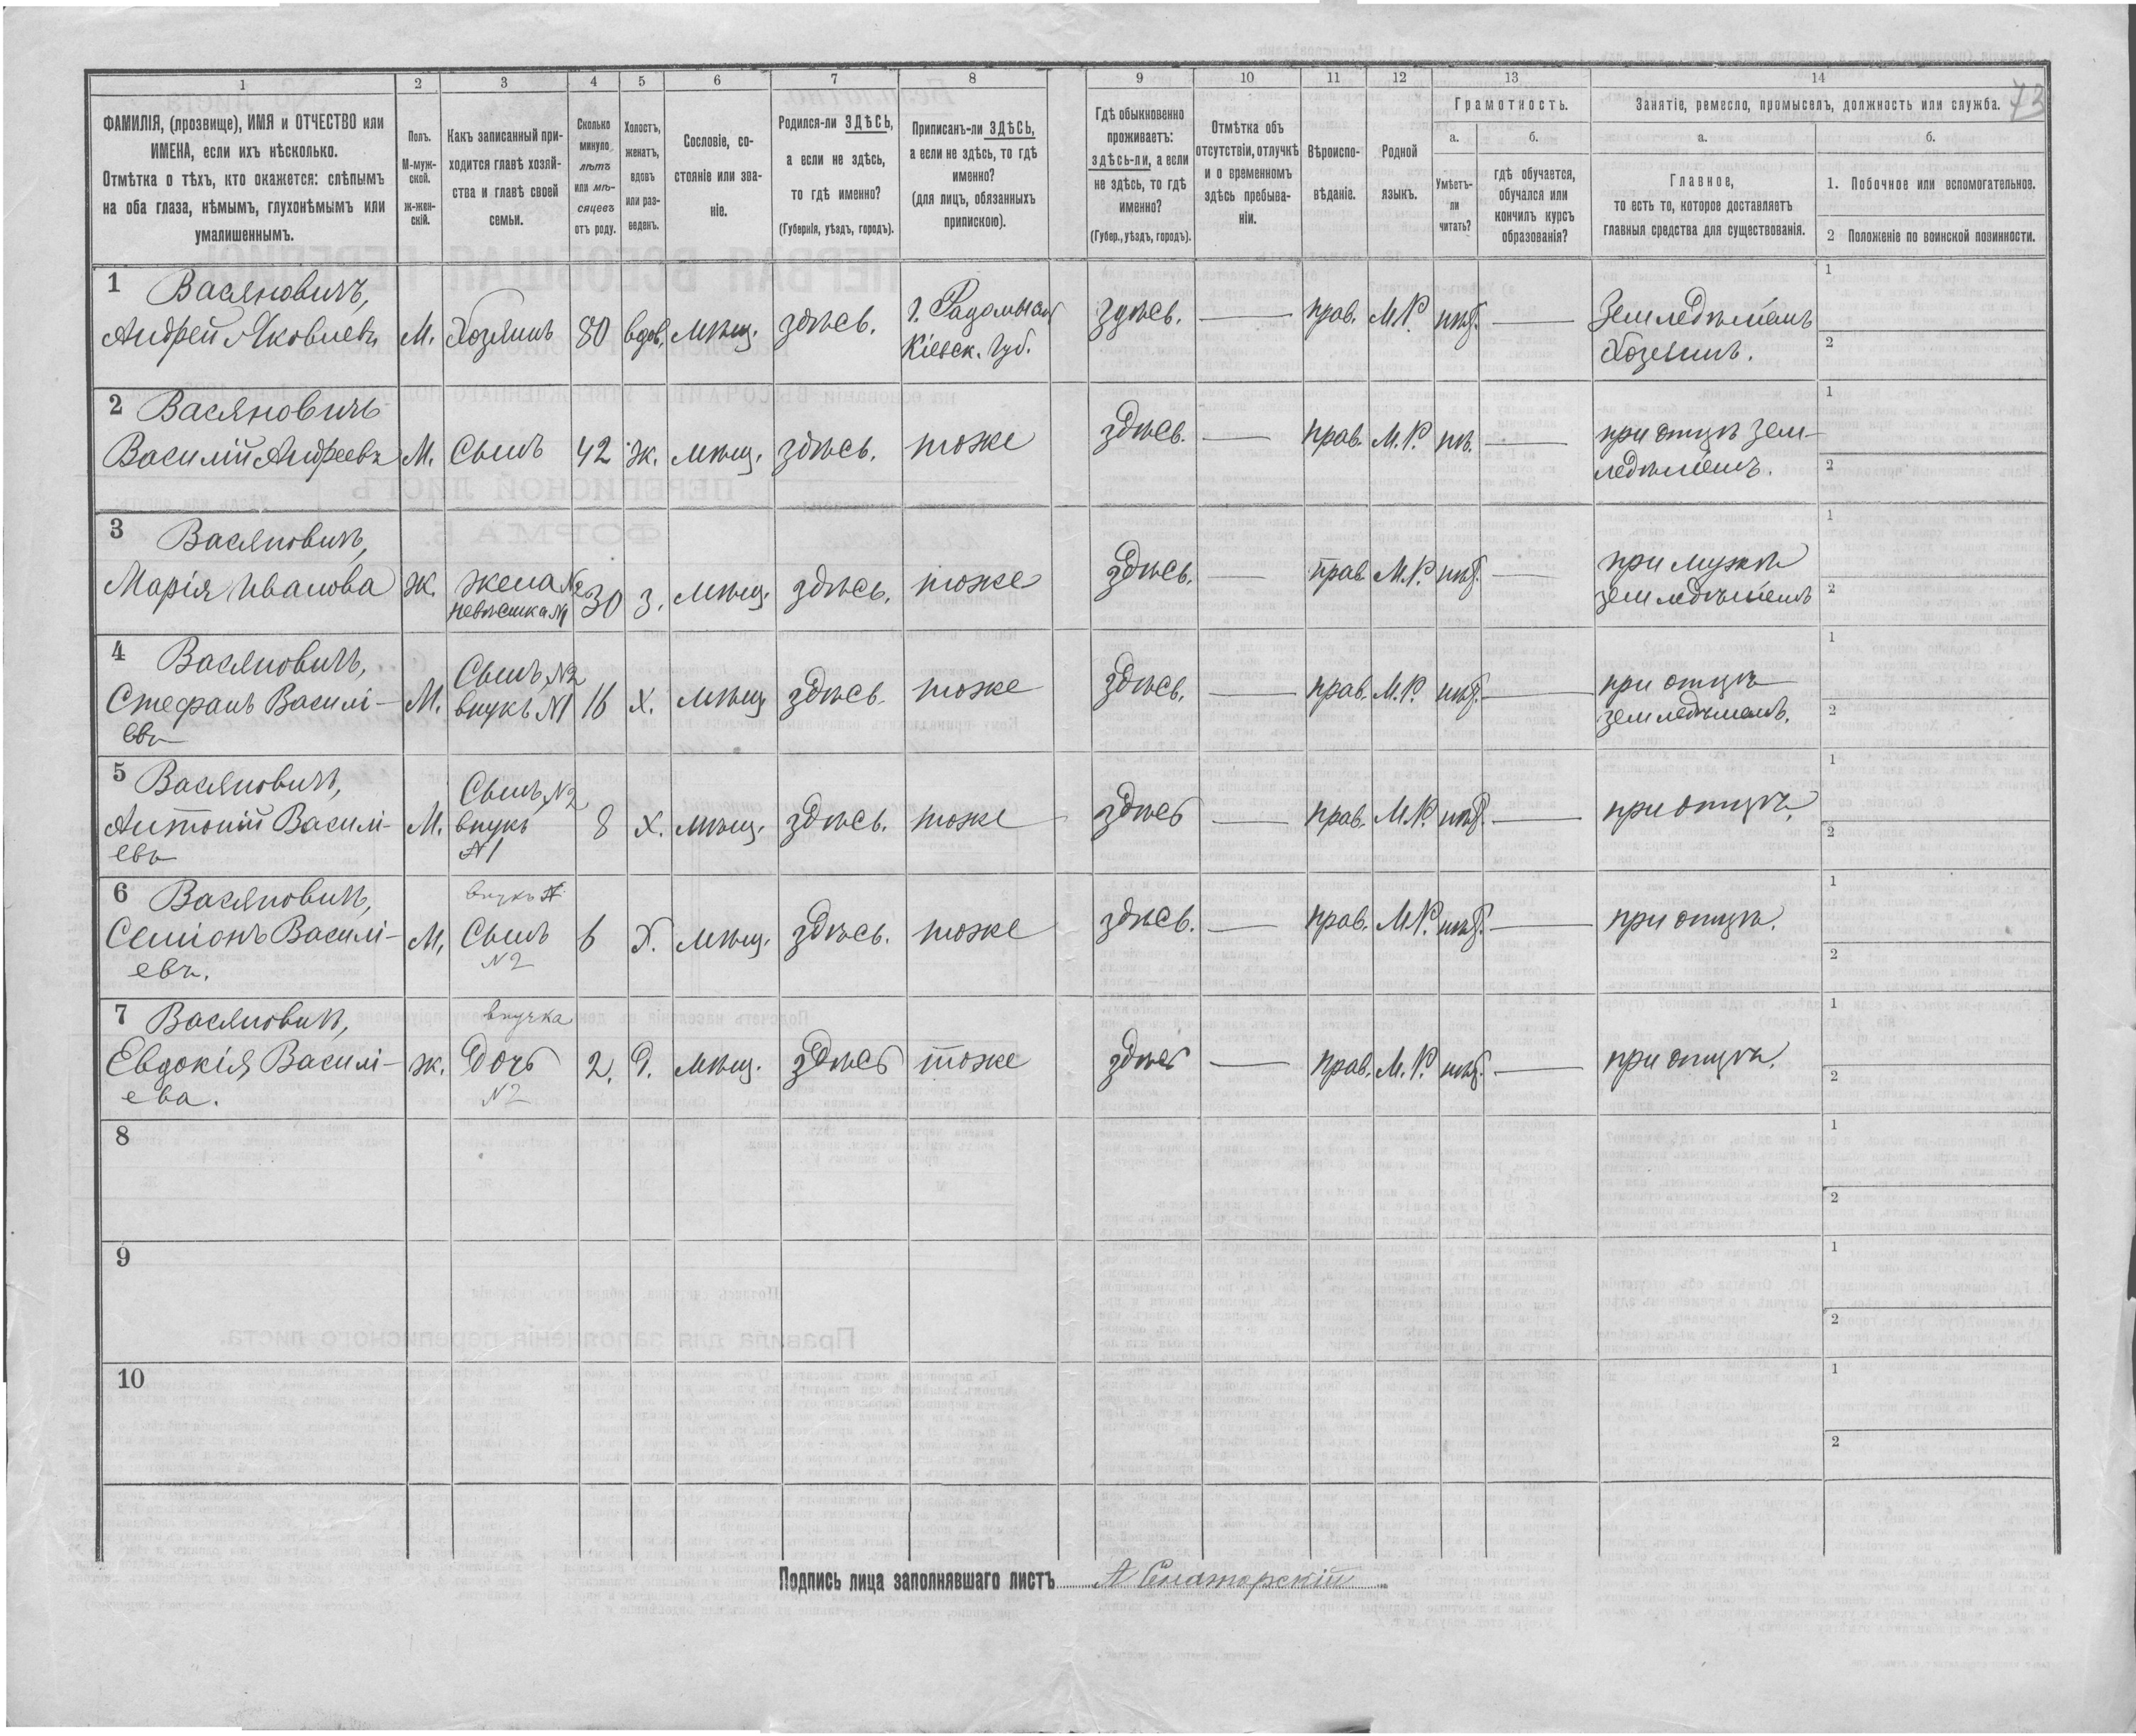 73
1
2
3
4
5
6
7
8
9
10
11
12
13
14
ФАМИЛІЯ, (прозвище), ИМЯ и ОТЧЕСТВО или
ИМЕНА, если ихъ нѣсколько.
Отмѣтка о тѣхъ, кто окажется: слѣпымъ
на оба глаза, нѣмымъ, глухонѣмымъ или
умалишеннымъ.
Полъ.
М-муж-
ской.
ж-жен-
скій.
Какъ записанный при-
ходится главѣ хозяй-
ства и главѣ своей
семьи.
Сколько
минуло
лѣтъ
или мѣ-
сяцевъ
отъ роду.
Холостъ,
женатъ,
вдовъ
или раз-
веденъ.
Сословіе, со-
стояніе или зва-
ніе.
Родился-ли ЗДѢСЬ,
а если не здѣсь,
то гдѣ именно?
(Губернія, уѣздъ, городъ).
Приписанъ-ли ЗДѢСЬ,
а если не здѣсь, то гдѣ
именно?
(для лицъ, обязанныхъ
припискою).
Гдѣ обыкновенно
проживаетъ:
здѣсь-ли, а если
не здѣсь, то гдѣ
именно?
(Губер., уѣздъ, городъ).
Отмѣтка объ
отсутствіи, отлучкѣ
и о временномъ
здѣсь пребыва-
ніи.
Вѣроиспо-
вѣданіе.
Родной
языкъ.
Грамотность.
а.
Умѣетъ-
ли
читать?
б.
гдѣ обучается,
обучался или
кончилъ курсъ
образованія?
Занятіе, ремесло, промыселъ, должность или служба.
а.
Главное,
то есть то, которое доставляетъ
главныя средства для существованія.
б.
1. Побочное или вспомогательное.
2 Положеніе по воинской повинности.
1 Васяновичъ,
Андрей Яковлевъ М. Хозяинъ 80 вдов. мѣщ. здѣсь. г. Радомысль
Кіевск. губ. здѣсь. — прав. М.Р. нѣт. — Земледѣлецъ
Хозяинъ. 1 2
2 Васяновичъ
Василій Андреевъ М. Сынъ 42 ж. мѣщ. здѣсь. тоже здѣсь. — прав. М.Р. нѣ. — при отцѣ зем-
ледѣлецъ. 1 2
3 Васяновичъ,
Марія Иванова ж. жена №2
невѣстка №1 30 з. мѣщ. здѣсь. тоже здѣсь. — прав. М.Р. нѣт. — при мужѣ
земледѣлецъ 1 2
4 Васяновичъ,
Стефанъ Василі-
евъ М. Сынъ №2
внукъ №1 16 х. мѣщ. здѣсь. тоже здѣсь. — прав. М.Р. нѣт. — при отцѣ
земледѣлецъ. 1 2
5 Васяновичъ,
Антоній Василі-
евъ М. Сынъ №2
внукъ
№1 8 х. мѣщ. здѣсь. тоже здѣсь — прав. М.Р. нѣт. — при отцѣ. 1 2
6 Васяновичъ,
Семіонъ Василі-
евъ. М. внукъ
Сынъ
№2 6 х. мѣщ. здѣсь. тоже здѣсь. — прав. М.Р. нѣт. — при отцѣ. 1 2
7 Васяновичъ,
Евдокія Василі-
ева. ж. внучка
Дочь
№2 2. д. мѣщ. здѣсь тоже здѣсь — прав. М.Р. нѣт. — при отцѣ. 1 2
8 1 2
9 1 2
10 1 2
Подпись лица заполнявшаго листъ А Сенаторскій